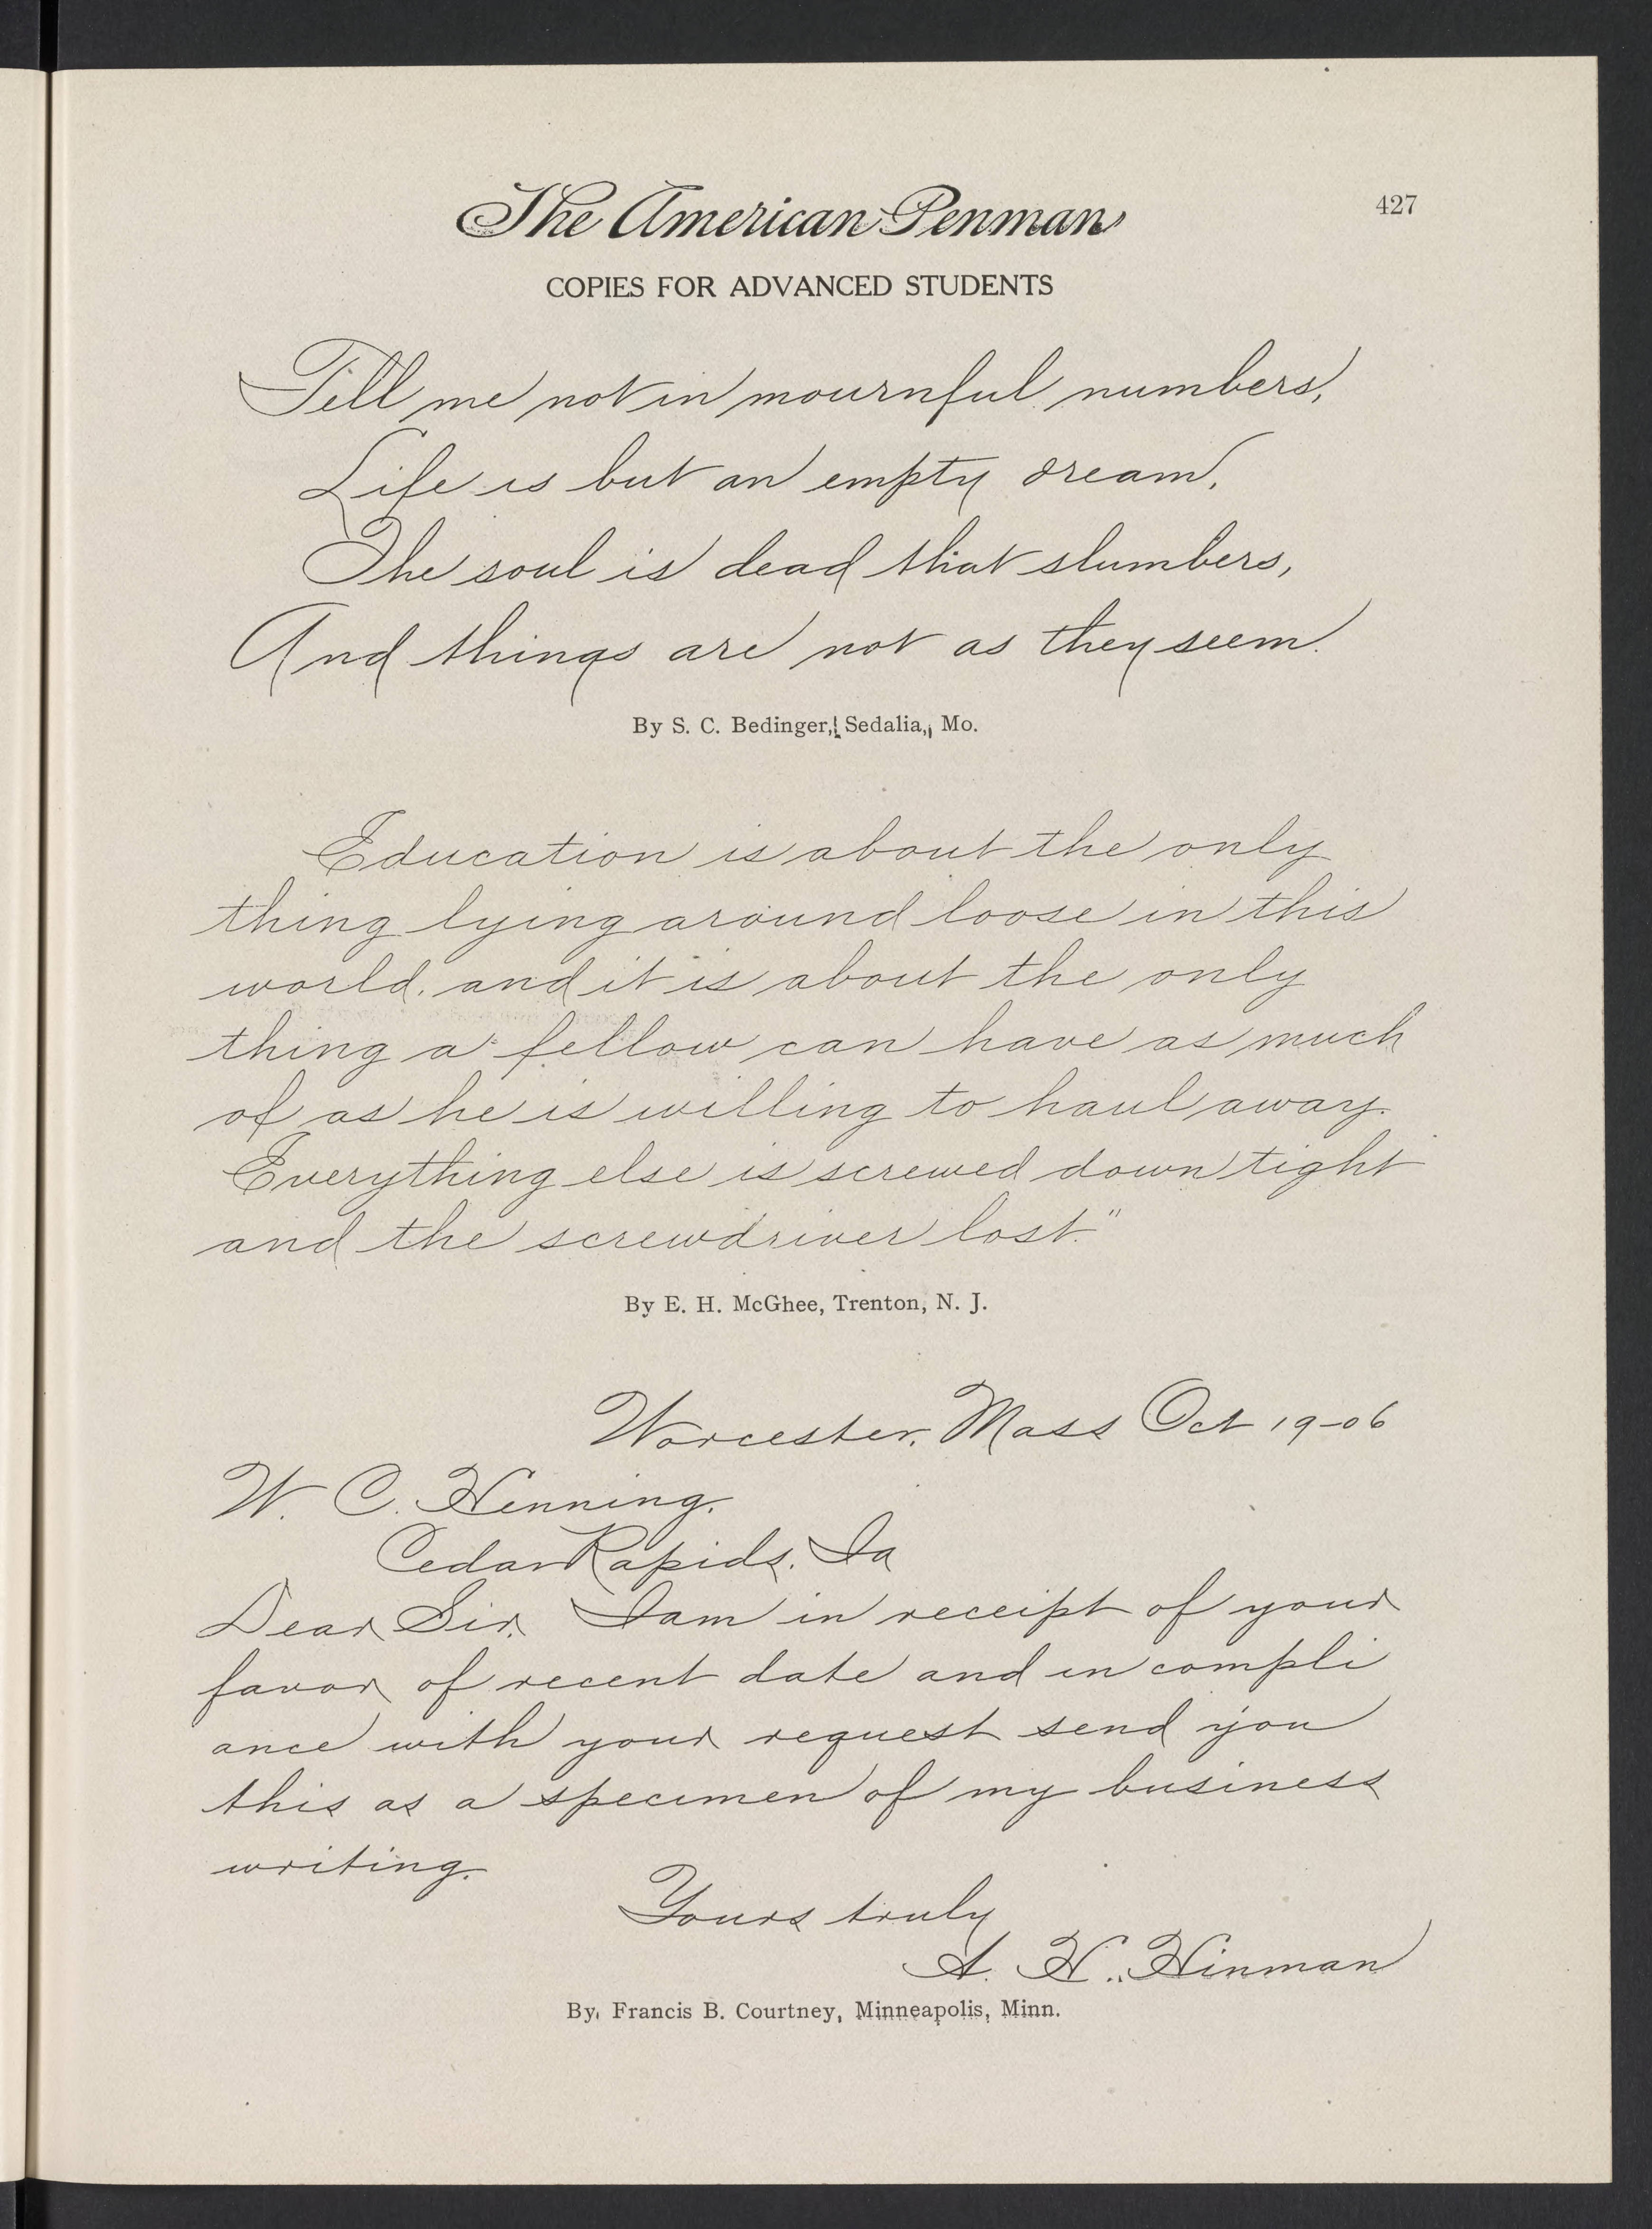 The American Penman
427
COPIES FOR ADVANCED STUDENTS
Tell me not in mournful numbers,
Life is but an empty dream,
The soul is dead that slumbers,
And things are not as they seem.
By S. C. Bedinger, Sedalia, Mo.
Education is about the only
thing lying around loose in this
world, and it is about the only
thing a fellow can have as much
of as he is willing to haul away.
Everything else is screwed down tight
and the screwdriver lost."
By E. H. McGhee, Trenton, N. J.
Worcester, Mass Oct 19-06
W. C. Henning,
Cedar Rapids, Ia
Dear Sir, I am in receipt of your
favor of recent date and in compli
ance with your request send you
this as a specimen of my business
writing.
Yours truly
A. H. Hinman
By Francis B. Courtney, Minneapolis, Minn.